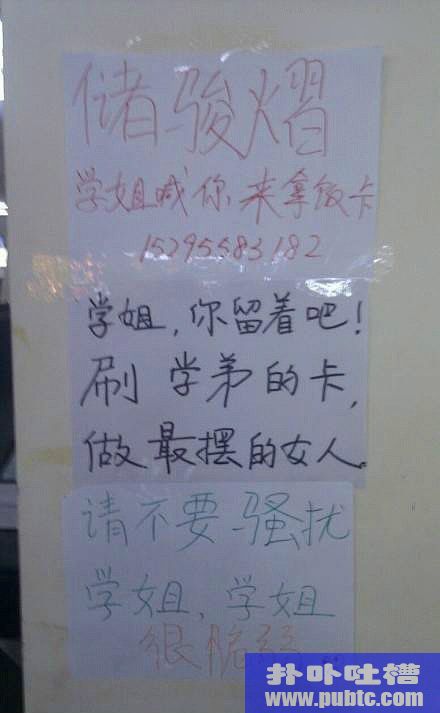 储骏熠
学姐喊你来拿饭卡
15295583182
学姐,你留着吧!
刷学弟的卡,
做最摆的女人。
请不要骚扰
学姐,学姐
很脆弱..
扑卟吐槽
www.pubtc.com